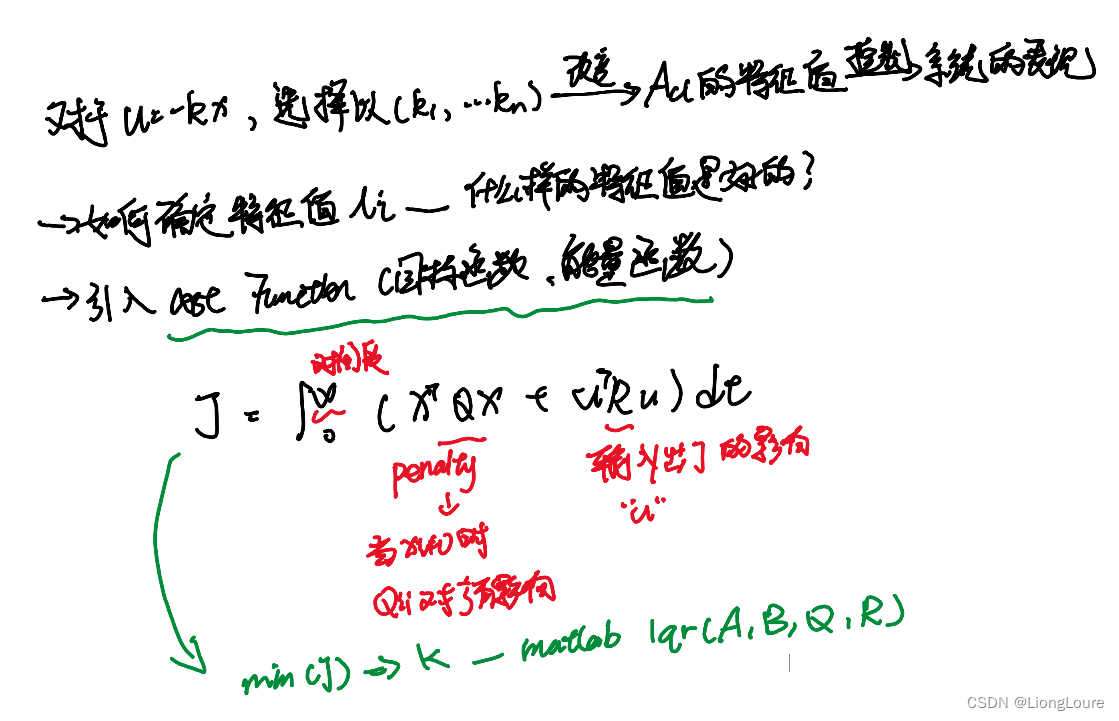 对于 u=-kx, 选择以(k₁, ...kₙ) 改变→ Acl的特征值 控制→系统的表现
→如何确定特征值 λi — 什么样的特征值是好的?
→引入 cost Function (目标函数、能量函数)
时间段
J = ∫₀^∞ (xᵀQx + uᵀRu) dt
penalty
输入对J的影响
↓
"u"
当x≠0时
Qii对J有影响
min(J) → K — matlab lqr(A,B,Q,R)
CSDN @LiongLoure